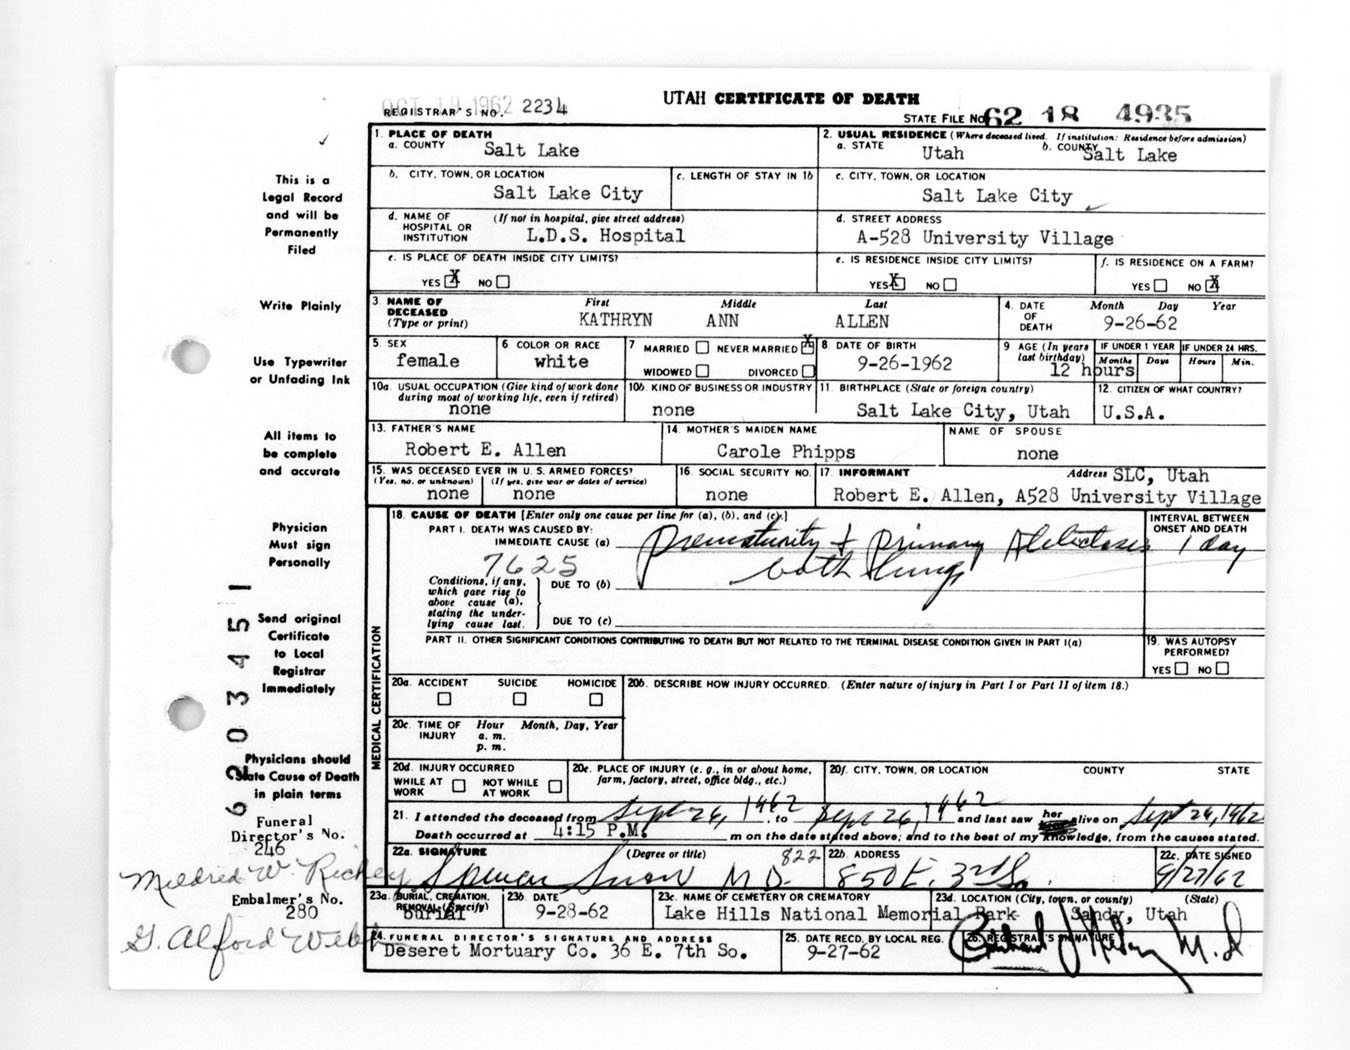 UTAH CERTIFICATE OF DEATH
OCT 19 1962
REGISTRAR'S NO. 2234
STATE FILE NO. 62 18 4935
This is a
Legal Record
and will be
Permanently
Filed
Write Plainly
Use Typewriter
or Unfading Ink
All items to
be complete
and accurate
Physician
Must sign
Personally
Send original
Certificate
to Local
Registrar
Immediately
Physicians should
State Cause of Death
in plain terms
6203451
Funeral
Director's No.
246
Mildred W. Richey
Embalmer's No.
280
G. Alford Webb
1. PLACE OF DEATH
a. COUNTY Salt Lake
2. USUAL RESIDENCE (Where deceased lived. If institution: Residence before admission)
a. STATE Utah b. COUNTY Salt Lake
b. CITY, TOWN, OR LOCATION Salt Lake City
c. LENGTH OF STAY IN 1b
c. CITY, TOWN, OR LOCATION Salt Lake City
d. NAME OF HOSPITAL OR INSTITUTION (If not in hospital, give street address) L.D.S. Hospital
d. STREET ADDRESS A-528 University Village
e. IS PLACE OF DEATH INSIDE CITY LIMITS?
YES X NO
e. IS RESIDENCE INSIDE CITY LIMITS?
YES X NO
f. IS RESIDENCE ON A FARM?
YES NO X
3. NAME OF DECEASED (Type or print) First Middle Last
KATHRYN ANN ALLEN
4. DATE OF DEATH Month Day Year
9-26-62
5. SEX female
6 COLOR OR RACE white
7 MARRIED NEVER MARRIED X
WIDOWED DIVORCED
8 DATE OF BIRTH 9-26-1962
9 AGE (In years last birthday) IF UNDER 1 YEAR IF UNDER 24 HRS.
Months Days Hours Min.
12 hours
10a. USUAL OCCUPATION (Give kind of work done during most of working life, even if retired) none
10b. KIND OF BUSINESS OR INDUSTRY none
11. BIRTHPLACE (State or foreign country) Salt Lake City, Utah
12. CITIZEN OF WHAT COUNTRY? U.S.A.
13. FATHER'S NAME Robert E. Allen
14. MOTHER'S MAIDEN NAME Carole Phipps
NAME OF SPOUSE none
15. WAS DECEASED EVER IN U. S. ARMED FORCES?
(Yes, no, or unknown) (If yes, give war or dates of service)
none none
16. SOCIAL SECURITY NO. none
17. INFORMANT Address SLC, Utah
Robert E. Allen, A528 University Village
MEDICAL CERTIFICATION
18. CAUSE OF DEATH [Enter only one cause per line for (a), (b), and (c).]
INTERVAL BETWEEN ONSET AND DEATH
PART I. DEATH WAS CAUSED BY:
IMMEDIATE CAUSE (a) Prematurity + Primary Atelectasis 1 day
7625
both lungs
Conditions, if any, which gave rise to above cause (a), stating the underlying cause last.
DUE TO (b)
DUE TO (c)
PART II. OTHER SIGNIFICANT CONDITIONS CONTRIBUTING TO DEATH BUT NOT RELATED TO THE TERMINAL DISEASE CONDITION GIVEN IN PART I(a)
19. WAS AUTOPSY PERFORMED?
YES NO
20a. ACCIDENT SUICIDE HOMICIDE
20b. DESCRIBE HOW INJURY OCCURRED. (Enter nature of injury in Part I or Part II of item 18.)
20c. TIME OF INJURY Hour Month, Day, Year
a. m.
p. m.
20d. INJURY OCCURRED
WHILE AT WORK NOT WHILE AT WORK
20e. PLACE OF INJURY (e. g., in or about home, farm, factory, street, office bldg., etc.)
20f. CITY, TOWN, OR LOCATION COUNTY STATE
21. I attended the deceased from Sept 26, 1962, to Sept 26, 1962 and last saw her alive on Sept 26, 1962
Death occurred at 4:15 P.M. m on the date stated above; and to the best of my knowledge, from the causes stated.
22a. SIGNATURE (Degree or title) 822
Spencer Snow M D.
22b. ADDRESS 850 E. 3rd So.
22c. DATE SIGNED 9/27/62
23a. BURIAL, CREMATION, REMOVAL (Specify) Burial
23b. DATE 9-28-62
23c. NAME OF CEMETERY OR CREMATORY
Lake Hills National Memorial Park
23d. LOCATION (City, town, or county) (State)
Sandy, Utah
24. FUNERAL DIRECTOR'S SIGNATURE AND ADDRESS
Deseret Mortuary Co. 36 E. 7th So.
25. DATE RECD. BY LOCAL REG. 9-27-62
26. REGISTRAR'S SIGNATURE